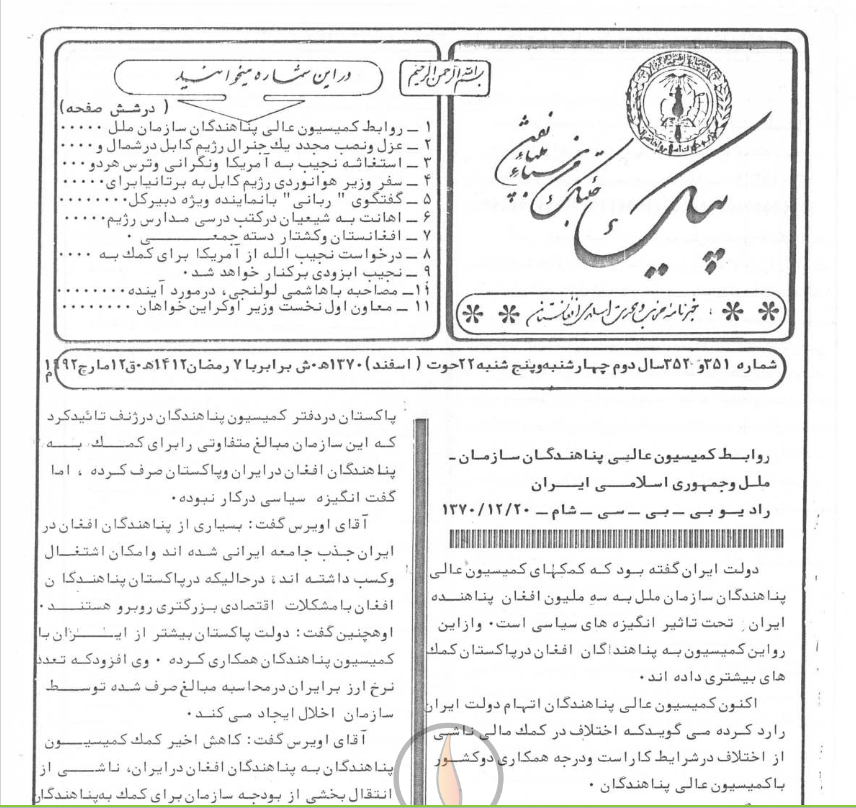 بسم الله الرحمن الرحیم
در این شماره میخوانید
( درشش صفحه)
۱ ــ روابط کمیسیون عالی پناهندگان سازمان ملل ۰۰۰۰۰
۲ ــ عزل ونصب مجدد یك جنرال رژیم کابل درشمال و ۰۰۰۰
۳ ــ استغاثه نجیب به آمریکا ونگرانی وترس هردو۰۰۰
۴ ــ سفر وزیر هوانوردی رژیم کابل به برتانیا برای۰۰۰۰۰
۵ ــ گفتگوی " ربانی " بانماینده ویژه دبیرکل۰۰۰۰۰۰۰۰۰
۶ ــ اهانت به شیعیان درکتب درسی مدارس رژیم۰۰۰۰۰
۷ ــ افغانستان وکشتار دسته جمعــــی ۰
۸ ــ درخواست نجیب الله از آمریکا برای کمك به ۰۰۰۰
۹ ــ نجیب ابزودی برکنار خواهد شد۰
۱۰ــ مصاحبه باهاشمی لولنجی، درمورد آینده۰۰۰۰۰۰۰۰
۱۱ ــ معاون اول نخست وزیر اوکراین خواهان ۰۰۰۰۰۰۰۰۰
پیك
خبرنامه حزب وحدت اسلامی افغانستان
شماره ۳۵۱و ۳۵۲سال دوم چهارشنبه وپنج شنبه ۲۲حوت ( اسفند) ۱۳۷۰ه۰ش برابر با ۷ رمضان ۱۴۱۲ه۰ق۱۲مارچ ۱۹۹۲م
روابط کمیسیون عالیی پناهندگان سازمان ــ
ملل وجمهوری اسلامی ایران
رادیو بی ــ بی ــ سی ــ شام ــ ۱۳۷۰/۱۲/۲۰
دولت ایران گفته بود که کمکهای کمیسیون عالی
پناهندگان سازمان ملل به سه ملیون افغان پناهنده
ایران تحت تاثیر انگیزه های سیاسی است۰ وازاین
رواین کمیسیون به پناهنداگان افغان درپاکستان کمك
های بیشتری داده اند۰
اکنون کمیسیون عالی پناهندگان اتهام دولت ایران
رارد کرده می گویدکه اختلاف در کمك مالی ناشی
از اختلاف درشرایط کاراست ودرجه همکاری دوکشور
باکمیسیون عالی پناهندگان ۰
پاکستان دردفتر کمیسیون پناهندگان درژنف تائیدکرد
که این سازمان مبالغ متفاوتی رابرای کمك به
پناهندگان افغان درایران وپاکستان صرف کرده ، اما
گفت انگیزه سیاسی درکار نبوده۰
آقای اویرس گفت: بسیاری از پناهندگان افغان در
ایران جذب جامعه ایرانی شده اند وامکان اشتغال
وکسب داشته اند، درحالیکه درپاکستان پناهندگان
افغان بامشکلات اقتصادی بزرگتری روبرو هستند۰
اوهچنین گفت: دولت پاکستان بیشتر از ایران با
کمیسیون پناهندگان همکاری کرده ۰ وی افزودکه تعدد
نرخ ارز برایران درمحاسبه مبالغ صرف شده توسط
سازمان اخلال ایجاد می کند۰
آقای اویرس گفت: کاهش اخیر کمك کمیسیون
پناهندگان به پناهندگان افغان درایران، ناشی از
انتقال بخشی از بودجه سازمان برای کمك به پناهندگان